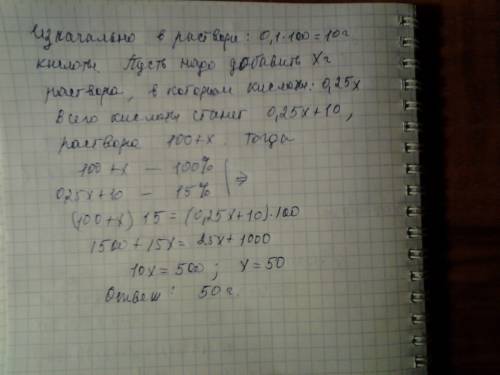 Изначально в растворе: 0,1·100=10г
кислоты. Пусть надо добавить Xг
раствора, в котором кислоты: 0,25x
Всего кислоты станет 0,25x+10,
раствора 100+x. Тогда
100+x — 100%
0,25x+10 — 15% ⇒
(100+x) 15 = (0,25x+10)·100
1500+15x = 25x+1000
10x=500; x=50
Ответ: 50г.